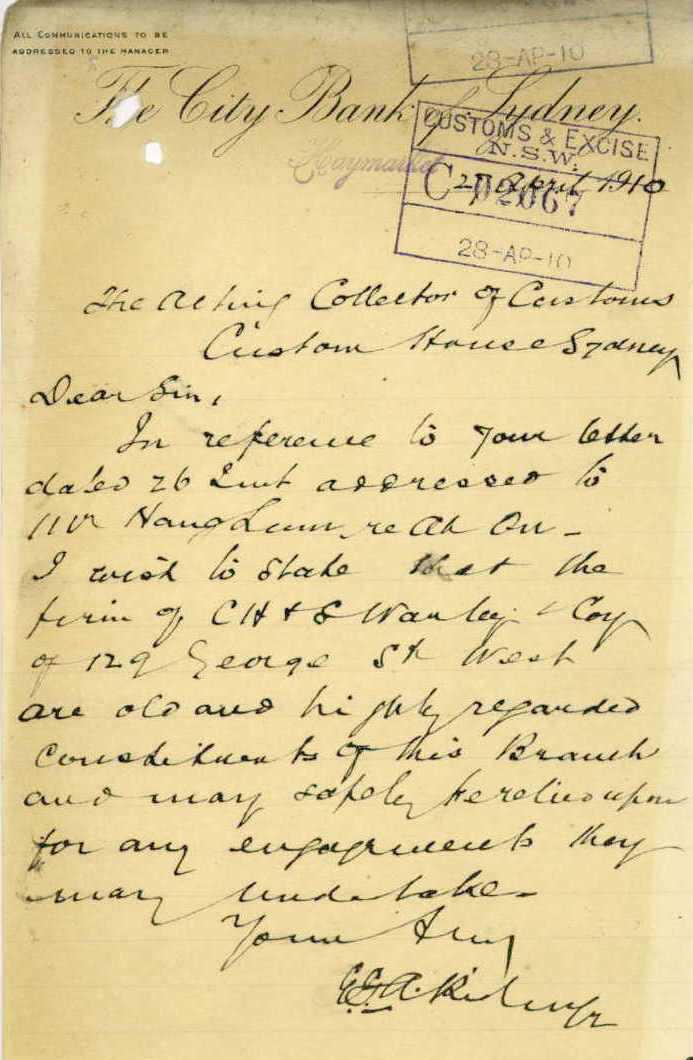 ALL COMMUNICATIONS TO BE
ADDRESSED TO THE MANAGER
28-AP-10
The City Bank of Sydney.
Haymarket
CUSTOMS & EXCISE
N.S.W.
C 02067
April 1910
28-AP-10
The Acting Collector of Customs
Custom House Sydney
Dear Sir,
In reference to your letter
dated 26 Inst addressed to
Mr Hang Lum re Ah On -
I wish to state that the
firm of C H & S Warley & Coy
of 129 George St West
are old and highly regarded
constituents of this Branch
and may safely be relied upon
for any engagements they
may undertake -
Yours